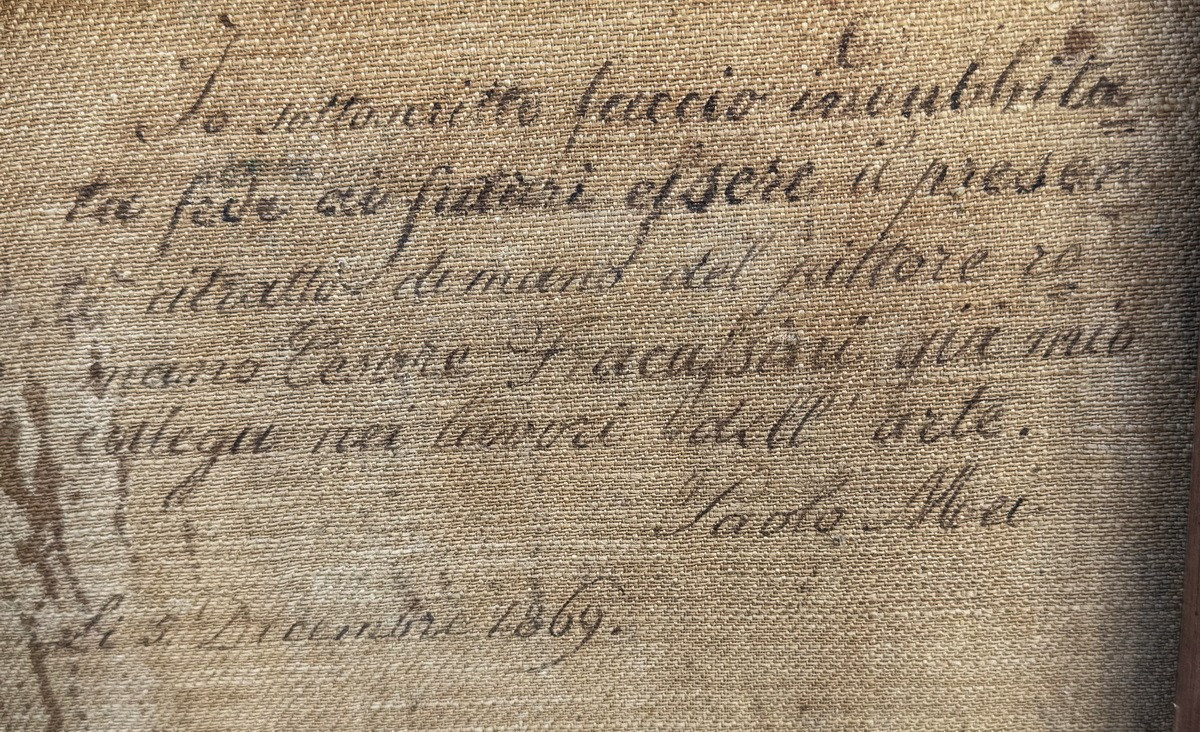 Io sottoscritto faccio indubbita=
ta fede ai futuri essere il presen=
te ritratto di mano del pittore ro=
mano Cesare Fracassini già mio
collega nei lavori dell' arte.
Paolo Mei
Li 5 Dicembre 1869.